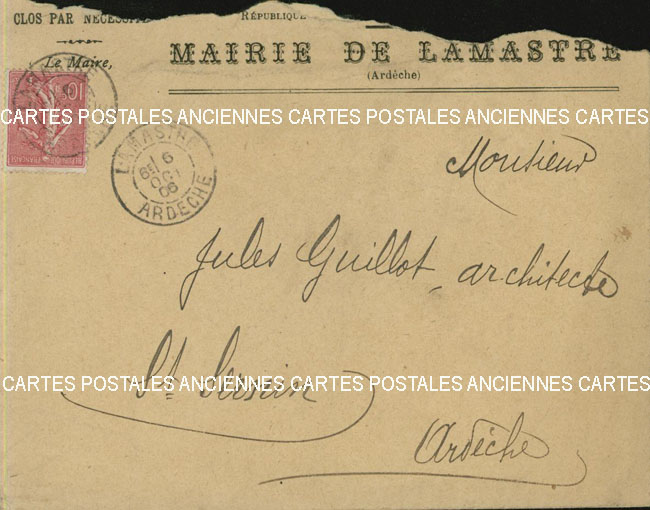 CLOS PAR NÉCESSITÉ
RÉPUBLIQUE
Le Maire,
MAIRIE DE LAMASTRE
(Ardèche)
10c
RÉPUBLIQUE FRANÇAISE
CARTES POSTALES ANCIENNES CARTES POSTALES ANCIENNES CARTES
LAMASTRE
6
OCT
06
ARDÈCHE
Monsieur
Jules Guillot architecte
CARTES POSTALES ANCIENNES CARTES POSTALES ANCIENNES CARTES
St
Ardèche